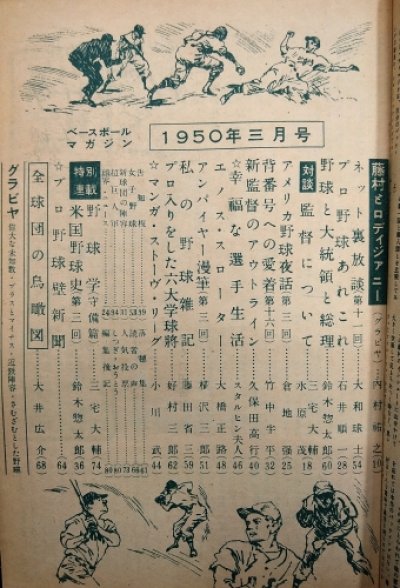 1950年三月号
ベースボール
マガジン
藤村とロディジアニー
(グラビヤ)
内村祐之(10)
ネット裏放談 第十一回 大和球士(54)
プロ野球あれこれ 石井順一(28)
野球と大統領と総理 鈴木惣太郎(60)
対談 監督について 三宅大輔 水原茂(18)
アメリカ野球夜話 第三回 倉地強(25)
背番号への愛着 第十六回 竹中半平(32)
新監督のアウトライン 久保田高行(40)
☆幸福な選手生活 スタルヒン夫人(46)
エノス・スローター 大橋正路(48)
アンパイヤー漫筆 第三回 柳沢三郎(51)
私の野球雑記 藤田省三(59)
プロ入りをした六大学球将 好村三郎(62)
☆マンガ・ストーヴ・リーグ 小川武(44)
告知板
女子野球
新球団の陣容
読者の声
人気投票
編集後記
特別連載
野球学 守備篇 三宅大輔(74)
米国野球史 第三回 鈴木惣太郎(36)
☆プロ野球壁新聞(64)
全球団の鳥瞰図 大井広介(68)
グラビヤ 偉大な未知数・プラスとマイナス・近鉄陣容・きむずむとした野球